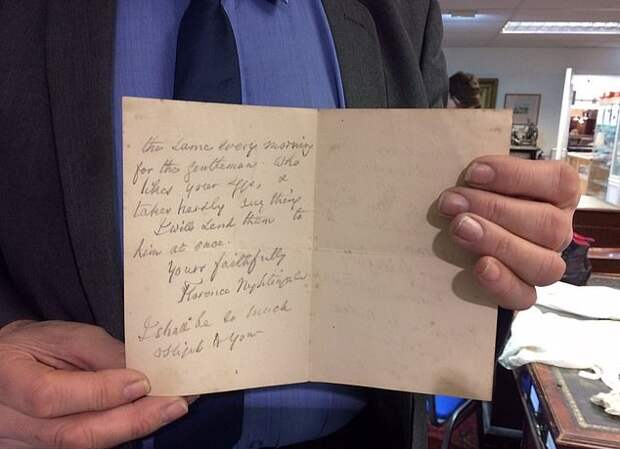 the same every morning
for the gentleman who
likes your eggs &
takes hardly anything
I will send them to
him at once.
Yours faithfully
Florence Nightingale
I shall be so much
obliged to you